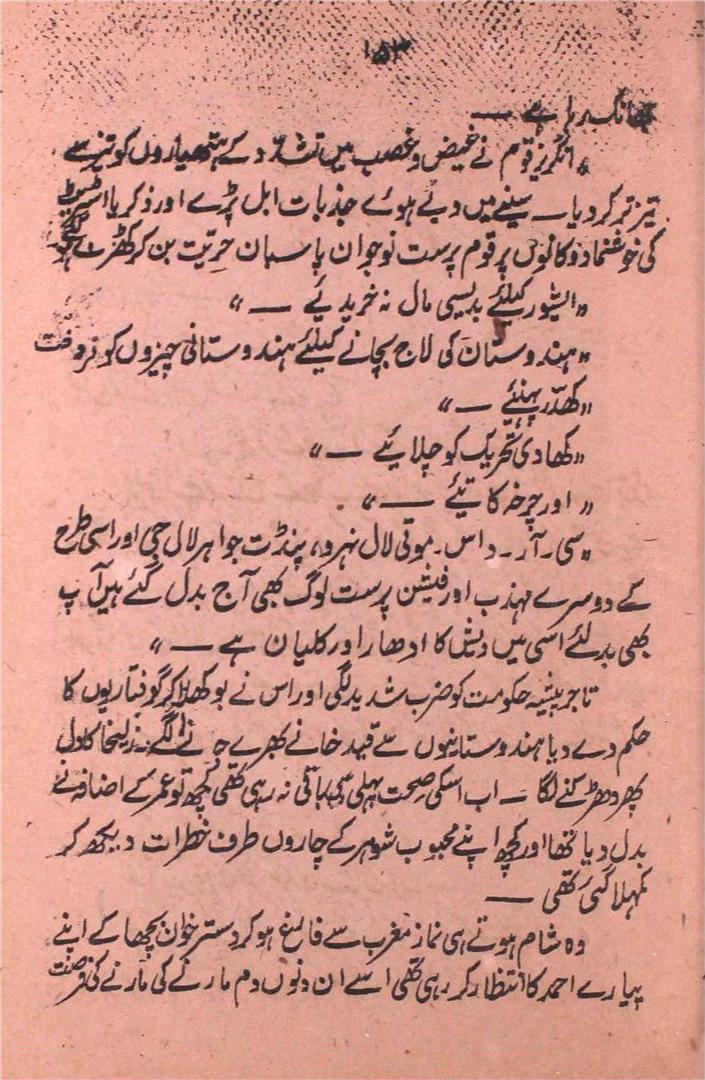 ۱۵۳
مانگ رہا ہے —
"انگریز قوم نے غیض و غضب میں تشدّد کے ہتھیاروں کو تیز سے
تیز تر کر دیا — سینے میں دبے ہوئے جذبات ابل پڑے اور ذکریا اسٹریٹ
کی خوشنما دوکانوں پر قوم پرست نوجوان پاسبان حرّیت بن کر کھڑے ہو گئے
"ایشور کیلئے بدیسی مال نہ خریدیئے —"
"ہندوستان کی لاج بچانے کیلئے ہندوستانی چیزوں کو فروخت
"کھدّر پہنئے —"
"کھادی تحریک کو چلایئے —"
"اور چرخہ کاتیئے —"
"سی۔آر۔داس۔موتی لال نہرو، پنڈت جواہر لال جی اور اسی طرح
کے دوسرے مہذب اور فیشن پرست لوگ بھی آج بدل گئے ہیں آپ
بھی بدلئے اسی میں دیش کا ادھار اور کلیان ہے —"
تاجر پیشہ حکومت کو ضرب شدید لگی اور اس نے بوکھلا کر گرفتاریوں کا
حکم دے دیا ہندوستانیوں سے قید خانے بھرے جانے لگے۔ زلیخا کا دل
پھر دھڑکنے لگا — اب اسکی صحت پہلی سی باقی نہ رہی تھی کچھ تو عمر کے اضافہ نے
بدل دیا تھا اور کچھ اپنے محبوب شوہر کے چاروں طرف خطرات دیکھ کر
کمہلا گئی تھی —
وہ شام ہوتے ہی نماز مغرب سے فارغ ہو کر دستر خوان بچھا کے اپنے
پیارے احمد کا انتظار کر رہی تھی اسے ان دنوں دم مارنے کی مارنے کی فرصت